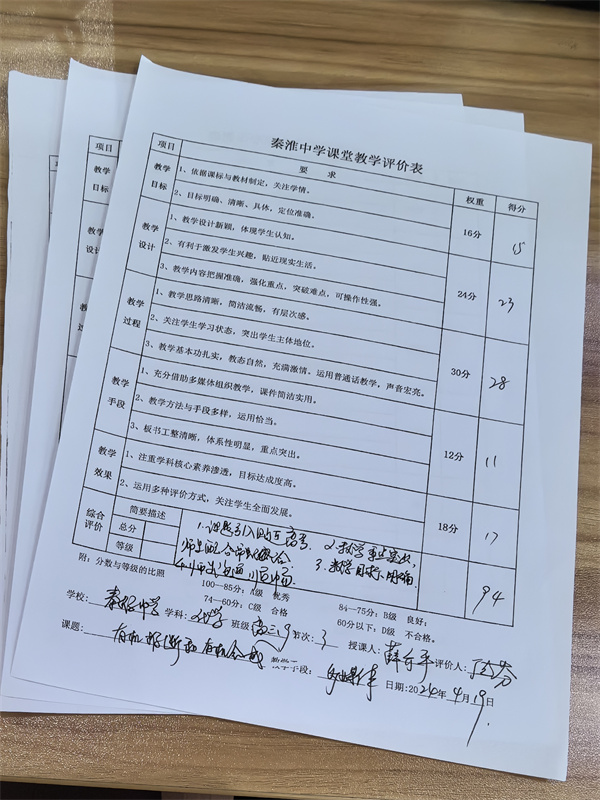 秦淮中学课堂教学评价表
项目 要 求 权重 得分
教学目标 1、依据课标与教材制定，关注学情。 16分 15
2、目标明确、清晰、具体，定位准确。
教学设计 1、教学设计新颖，体现学生认知。 24分 23
2、有利于激发学生兴趣，贴近现实生活。
3、教学内容把握准确，强化重点，突破难点，可操作性强。
教学过程 1、教学思路清晰，简洁流畅，有层次感。 30分 28
2、关注学生学习状态，突出学生主体地位。
3、教学基本功扎实，教态自然，充满激情。运用普通话教学，声音宏亮。
教学手段 1、充分借助多媒体组织教学，课件简洁实用。 12分 11
2、教学方法与手段多样，运用恰当。
3、板书工整清晰，体系性明显，重点突出。
教学效果 1、注重学科核心素养渗透，目标达成度高。 18分 17
2、运用多种评价方式，关注学生全面发展。
综合评价 简要描述 1.课题引入贴近高考 2.教学
3.教学目标明确
总分 94
等级
附：分数与等级的比照
100—85分：A级 优秀 84—75分：B级 良好；
74—60分：C级 合格 60分以下：D级 不合格。
学校： 秦淮中学 学科： 化学 班级 高二 节次： 3 授课人： 评价人：
课题： 有机推断和有机合成 教学手段： 多媒体 日期：2024年4月19日
项目
教学目标
教学设计